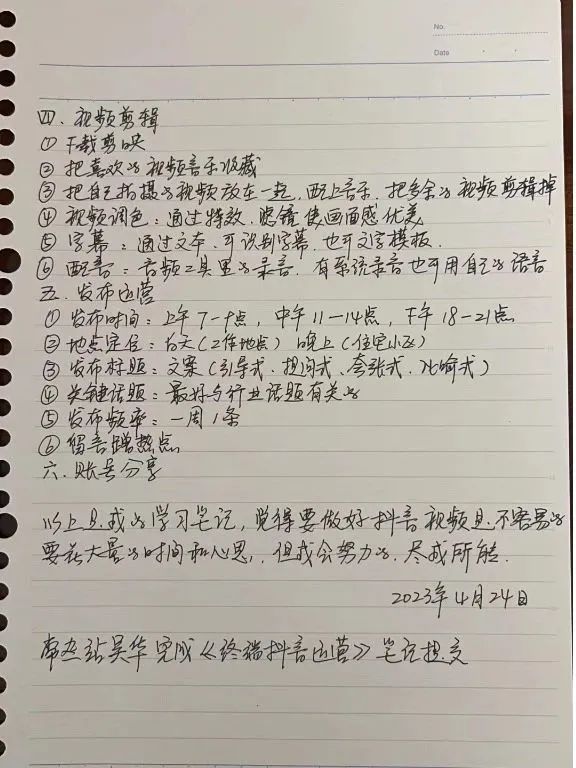 No.
Date
四. 视频剪辑
① 下载剪映
② 把喜欢的视频音乐收藏
③ 把自己拍摄的视频放在一起, 配上音乐, 把多余的视频剪辑掉
④ 视频调色: 通过特效、滤镜使画面感优美
⑤ 字幕: 通过文本, 可识别字幕, 也可文字模板.
⑥ 配音: 音频工具里的录音, 有系统录音也可用自己的语音
五. 发布运营
① 发布时间: 上午 7-9点, 中午 11-14点, 下午 18-21点
② 地点定位: 白天(工作地点) 晚上(住宅小区)
③ 发布标题: 文案(引导式、提问式、夸张式、比喻式)
④ 关键话题: 最好与行业话题有关的
⑤ 发布频率: 一周1条
⑥ 留言蹭热点
六. 账号分享
以上是我的学习笔记, 觉得要做好抖音视频是不容易的
要花大量的时间和心思, 但我会努力的, 尽我所能.
2023年4月24日
常熟站吴华完成《终端抖音运营》笔记提交